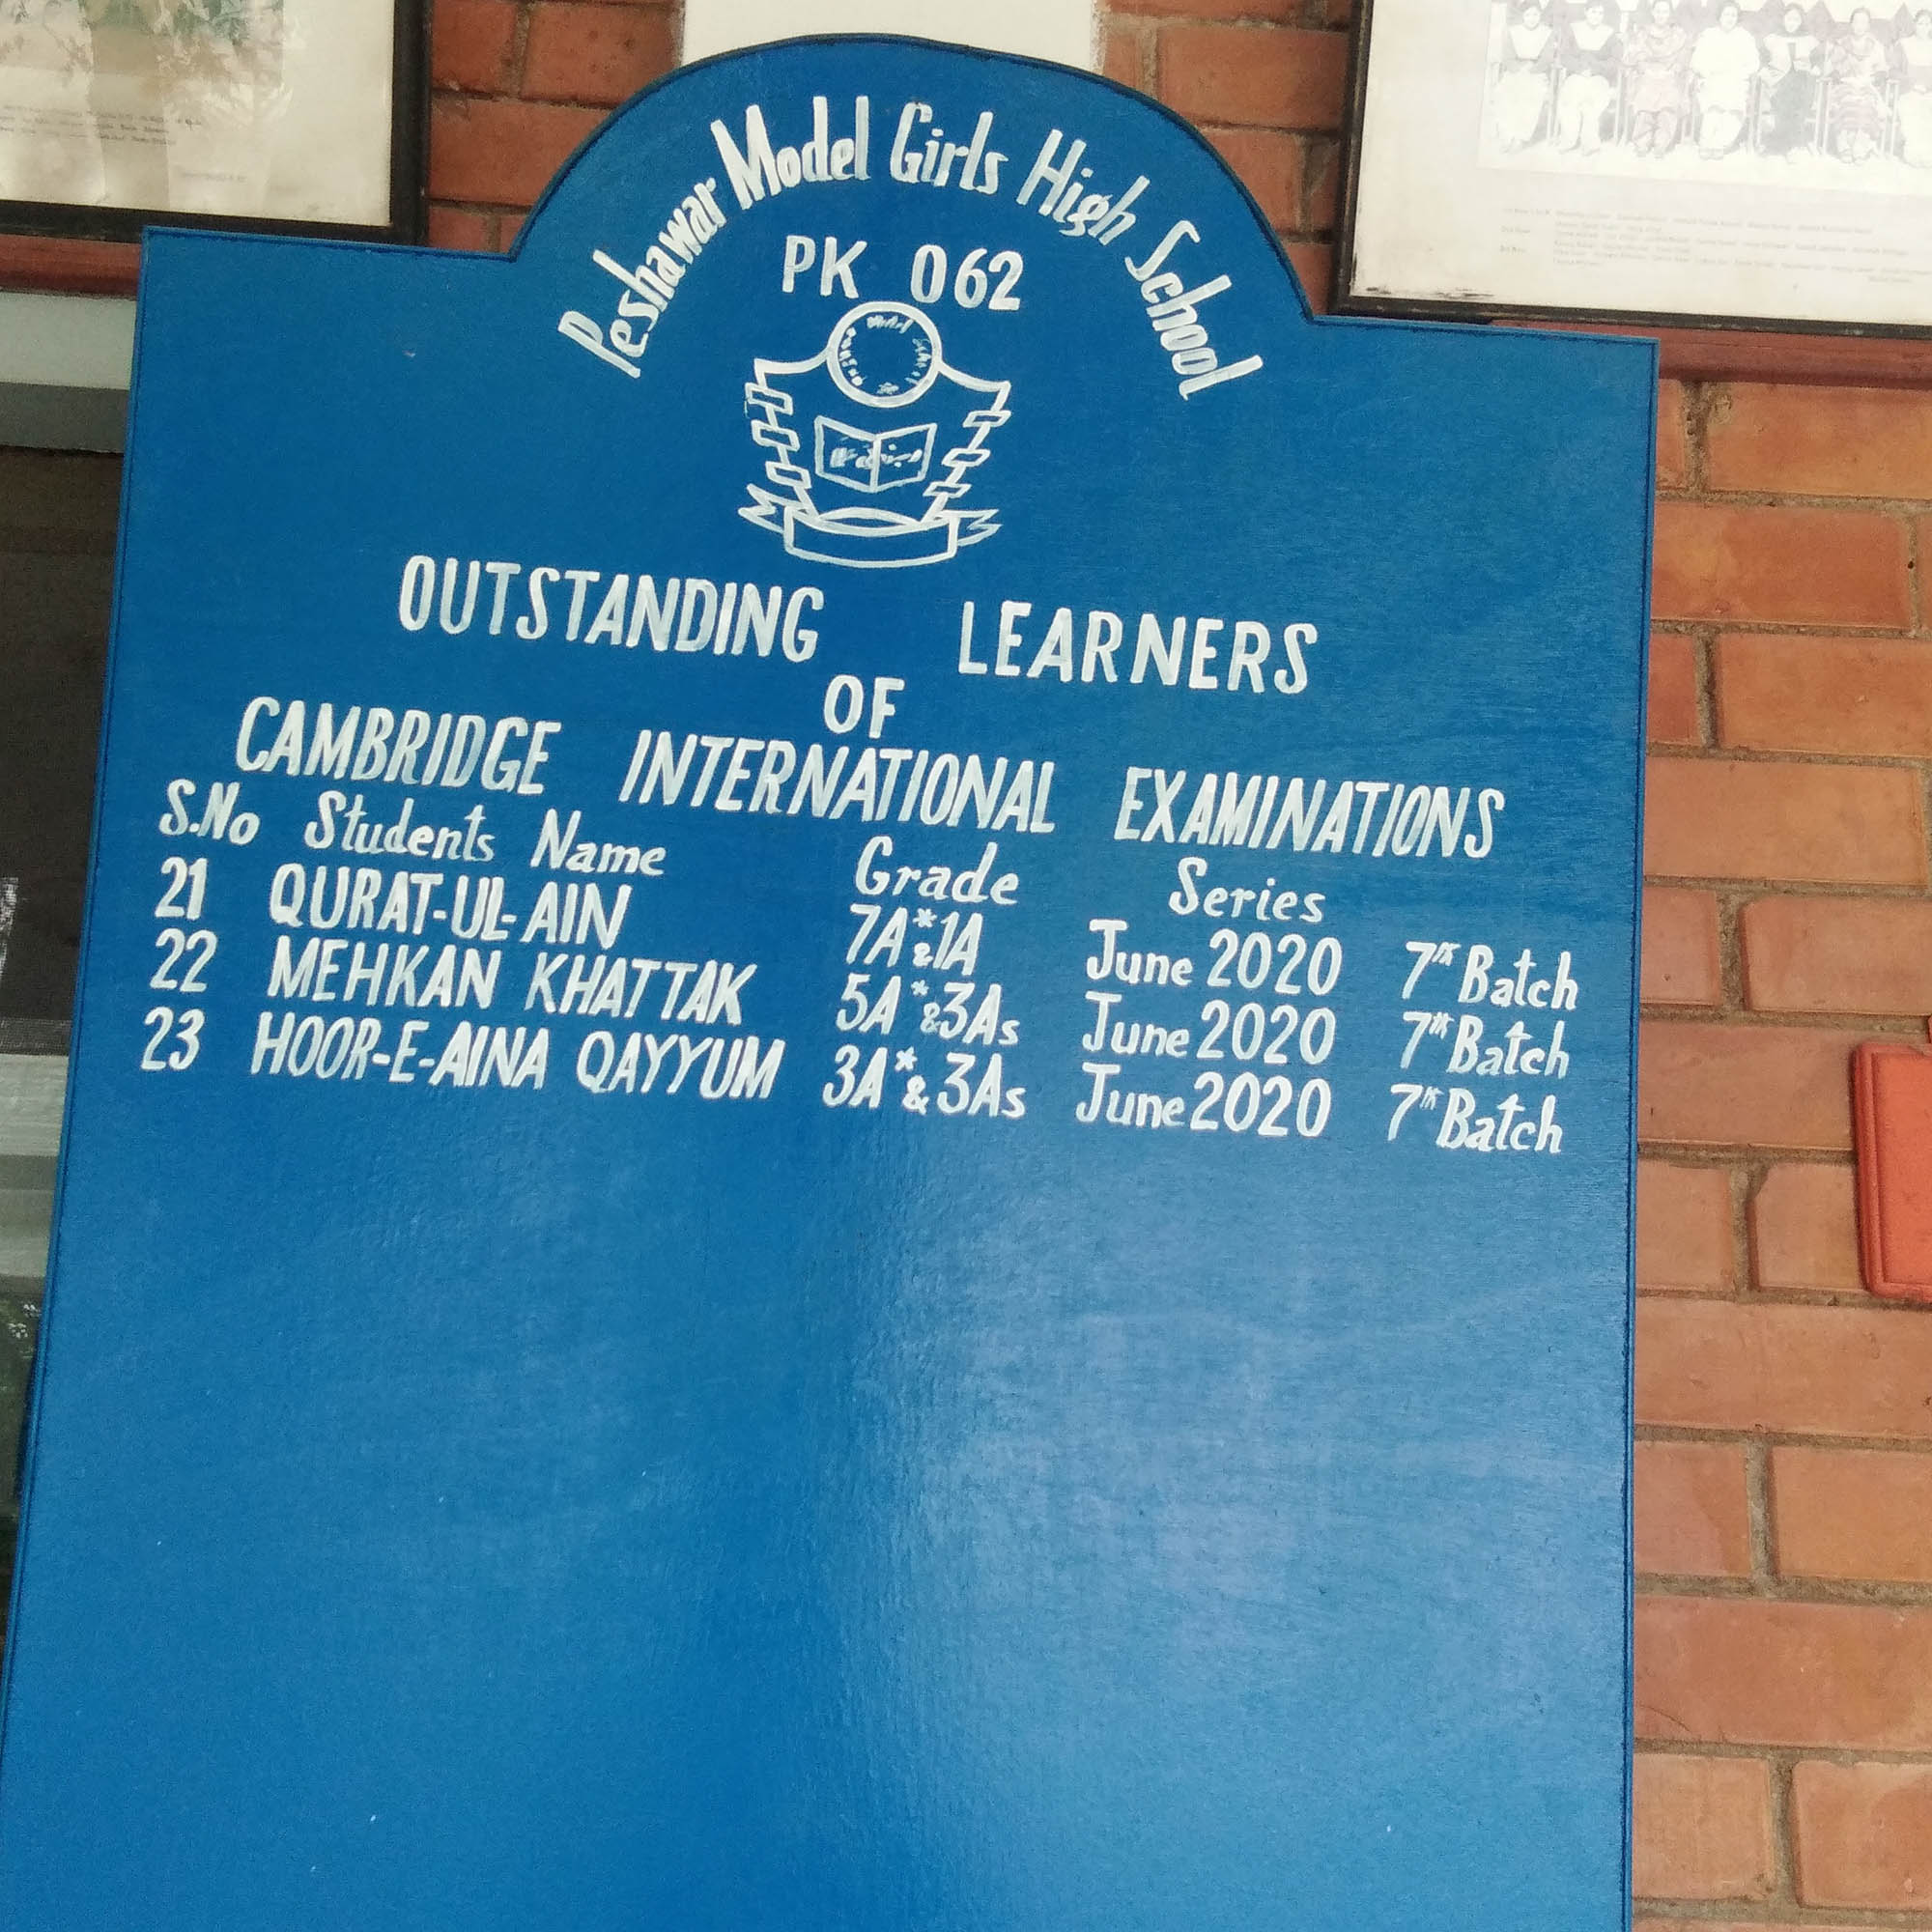 Peshawar Model Girls High School
PK 062
OUTSTANDING LEARNERS
OF
CAMBRIDGE INTERNATIONAL EXAMINATIONS
S.No Students Name Grade Series
21 QURAT-UL-AIN 7A*&1A June 2020 7th Batch
22 MEHKAN KHATTAK 5A*&3As June 2020 7th Batch
23 HOOR-E-AINA QAYYUM 3A*&3As June 2020 7th Batch